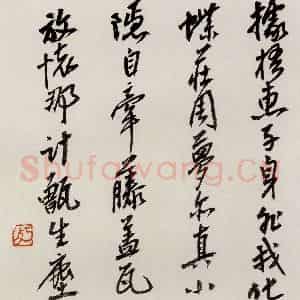 據梧惠子身非我化
蝶莊周夢亦真小
隱自牽蘿蓋瓦
放懷那計甑生塵
Shufawang.cn